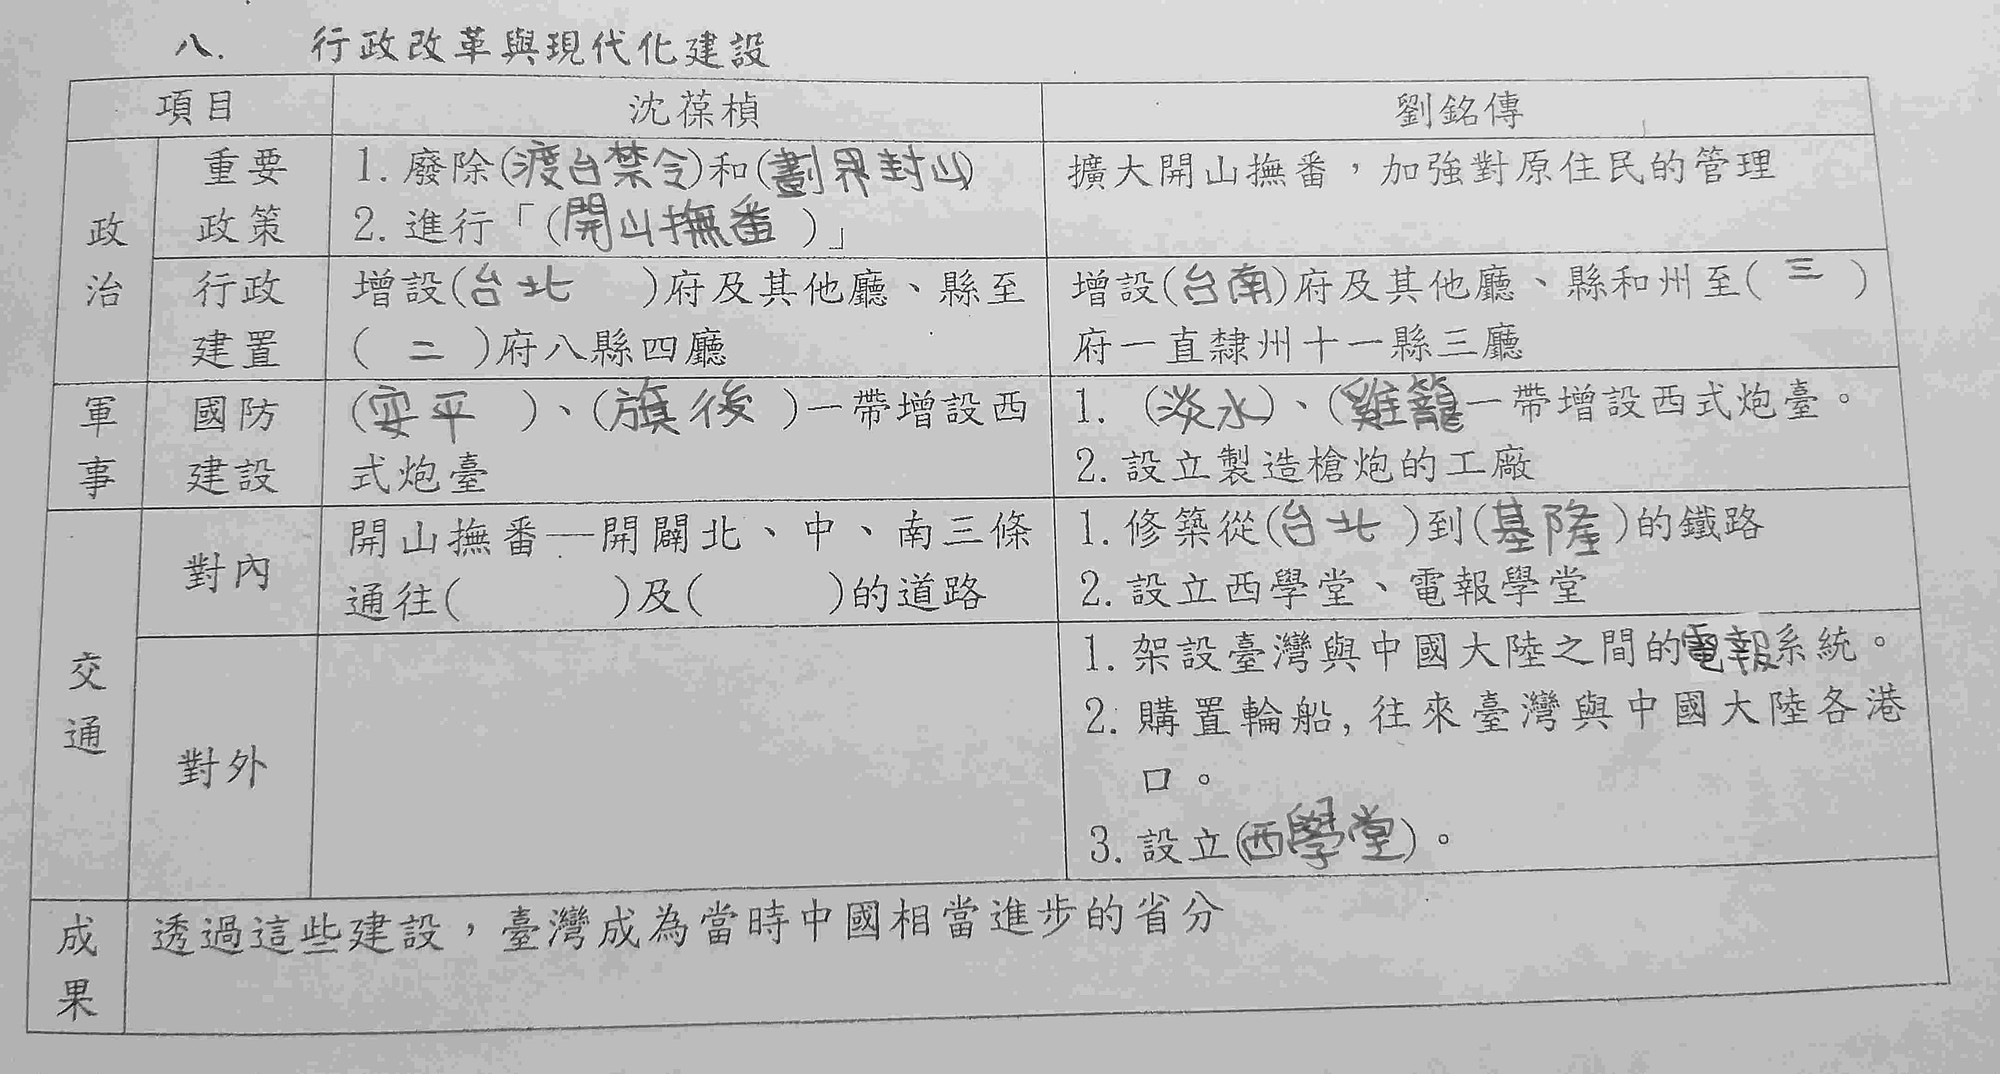 八. 行政改革與現代化建設
項目 沈葆楨 劉銘傳
政治
重要
政策
1. 廢除(渡台禁令)和(劃界封山)
2. 進行「(開山撫番 )」
擴大開山撫番，加強對原住民的管理
行政
建置
增設(台北 )府及其他廳、縣至
( 二 )府八縣四廳
增設(台南)府及其他廳、縣和州至( 三 )
府一直隸州十一縣三廳
軍事
國防
建設
(安平 )、(旗後 )一帶增設西
式炮臺
1. (淡水)、(雞籠一帶增設西式炮臺。
2. 設立製造槍炮的工廠
交通
對內
開山撫番—開闢北、中、南三條
通往( )及( )的道路
1. 修築從(台北 )到(基隆 )的鐵路
2. 設立西學堂、電報學堂
對外
1. 架設臺灣與中國大陸之間的電報系統。
2. 購置輪船, 往來臺灣與中國大陸各港
口。
3. 設立(西學堂)。
成果
透過這些建設，臺灣成為當時中國相當進步的省分